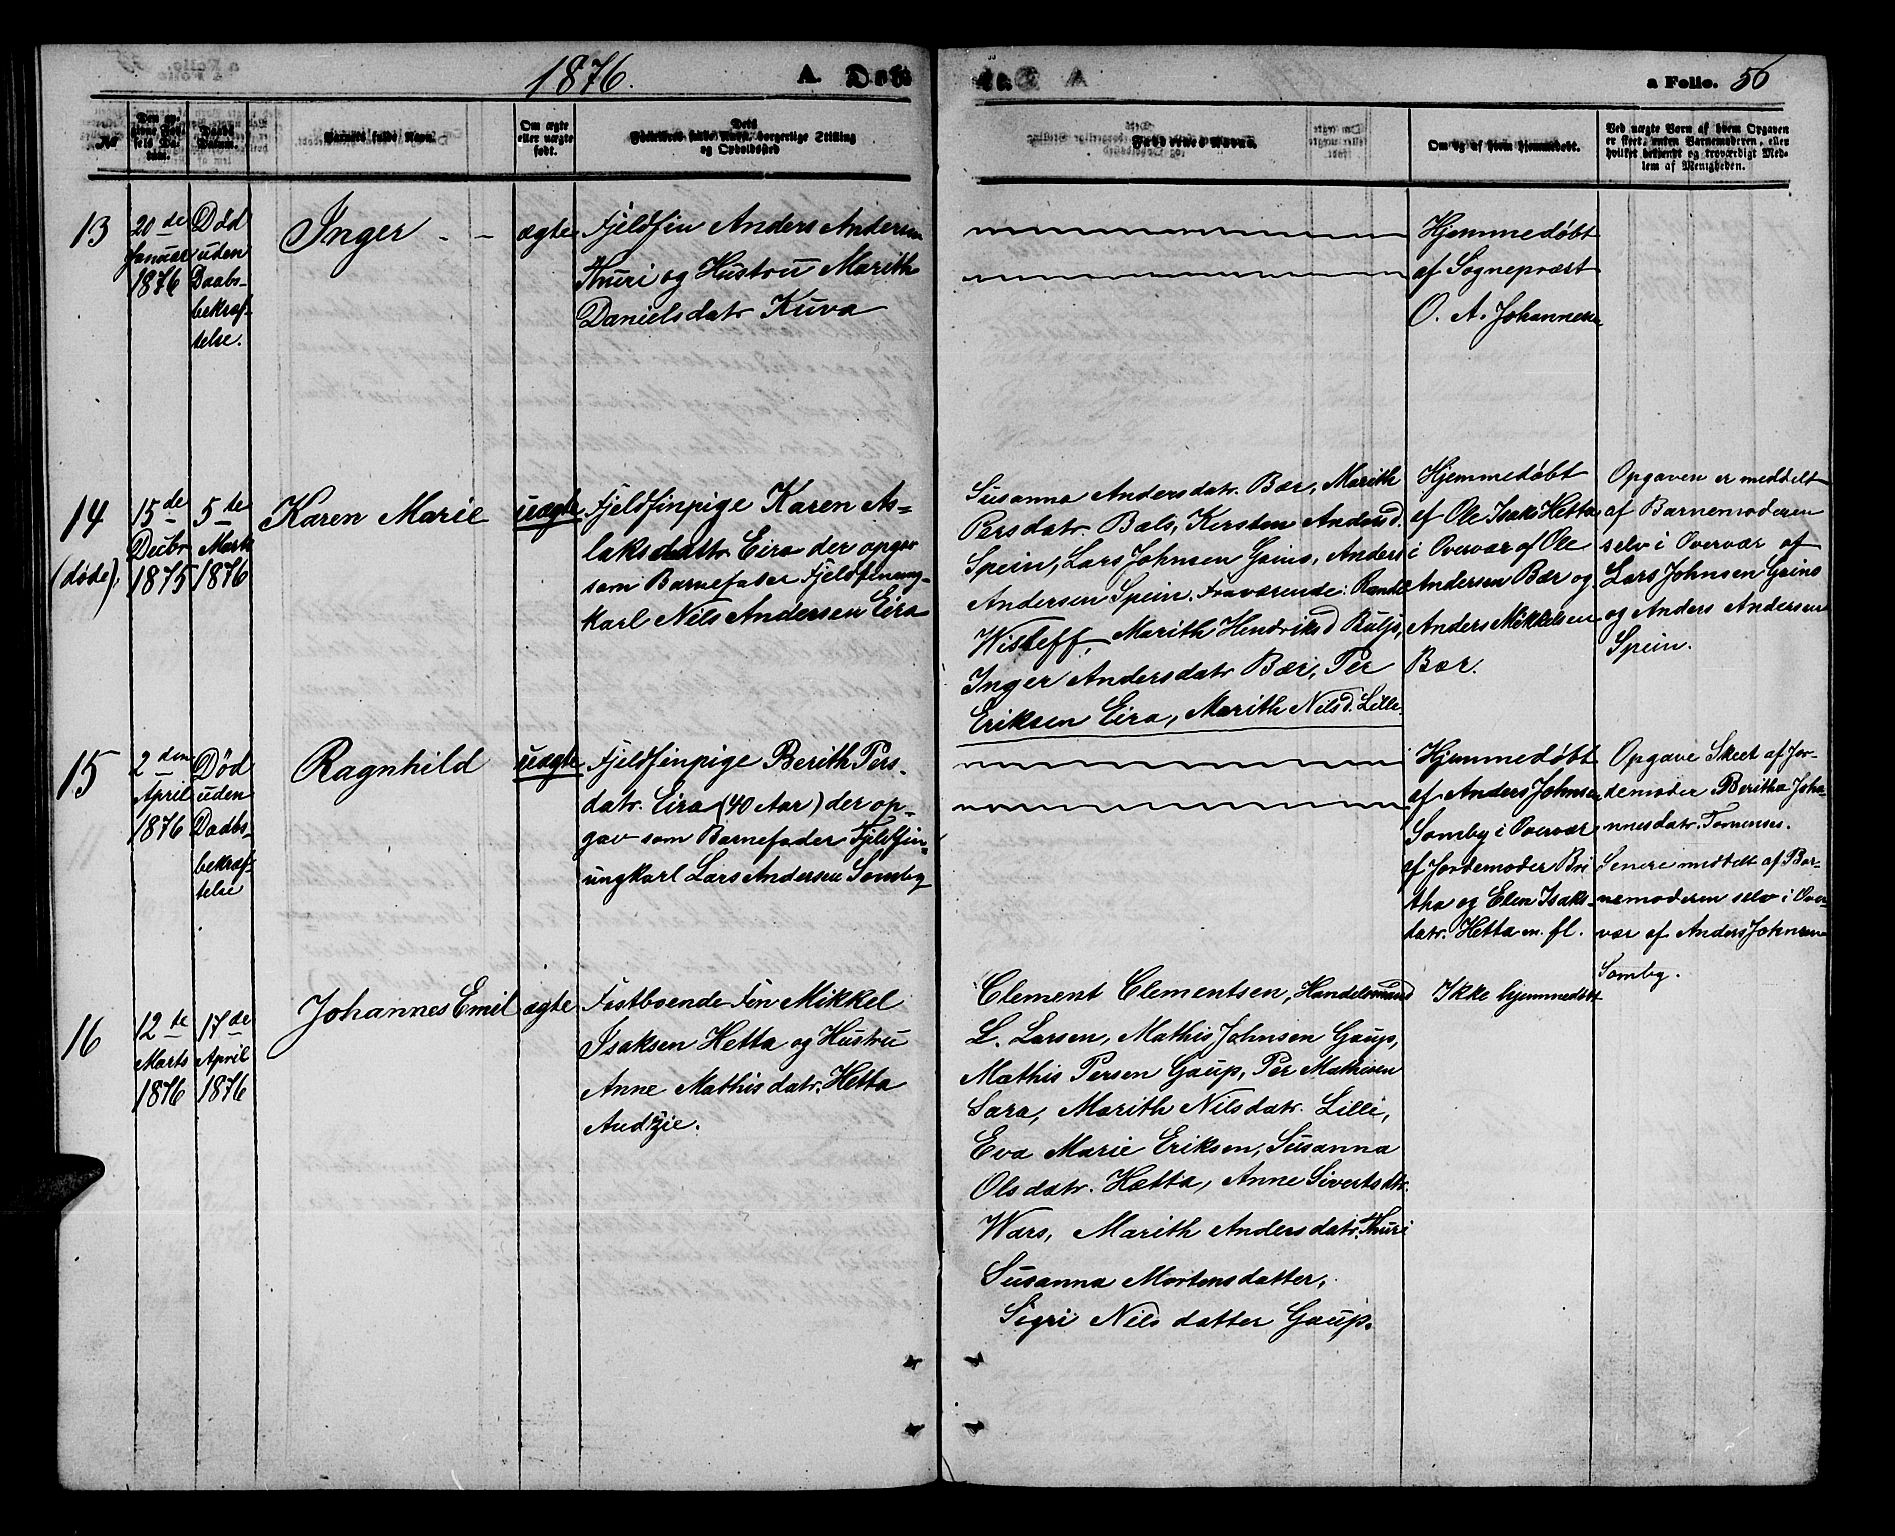 1876.
A. Døb
te.
a Folio. 56
No.
Den opgivne Fødsels Datum.
Daabs Datum.
Barnets fulde Navn.
Om ægte eller uægte født.
Dets Forældres fulde Navn, borgerlige Stilling og Opholdssted
Faddernes Navne.
Om og af hvem hjemmedøbt.
Ved uægte Børn af hvem Opgaven er skeet, enten Barnemoderen, eller hvilket bekjendt og troværdigt Medlem af Menigheden.
13
20de
Januar
1876
Død
uden
Daabs-
bekræf-
telse.
Inger - -
ægte
Fjeldfin Anders Andersen
Thuri og Hustru Marith
Danielsdatr Kuva
Hjemmedøbt
af Sognepræst
O. A. Johannesen
14
(døde).
15de
Decbr
1875
5te
Marts
1876
Karen Marie
uægte
Fjeldfinpige Karen As-
laksdattr Eira der opgav
som Barnefader Fjeldfinung-
karl Nils Andersen Eira
Susanna Andersdatr. Bær, Marith
Persdatr. Bæls, Kersten Andersd.
Spein, Lars Johnsen Gaino, Anders
Andersen Spein. Fraværende:
Marith Hendriksd Buljo,
Inger Andersdatr Bær, Per
Eriksen Eira, Marith Nilsd. Lille.
Hjemmedøbt
af Ole Isaks Hetta
i Overvær af Ole
Andersen Bær og
Anders Mikkelsen
Bær.
Opgaven er meddelt
af Barnemoderen
selv i Overvær af
Lars Johnsen Gaino
og Anders Andersen
Spein.
15
2den
April
1876
Død
uden
Daabs-
bekræf-
telse
Ragnhild
uægte
Fjeldfinpige Berith Pers-
datr. Eira (40 Aar) der op-
gav som Barnefader Fjeldfin-
ungkarl Lars Andersen Somby
Hjemmedøbt
af Anders Johnsen
Somby i Overvær
af Jordemoder Bri
tha og Elen Isaks-
datr. Hetta m. fl.
Opgave Skeet af Jor-
demoder Beritha Joha-
nnesdatr. Tornenses.
Senere meddelt af Bar-
nemoderen selv i Over-
vær af Anders Johnsen
Somby.
16
12te
Marts
1876
17de
April
1876
Johannes Emil
ægte
Fastboende Fin Mikkel
Isaksen Hetta og Hustru
Anne Mathisdatr. Hetta
Audzie.
Clement Clementsen, Handelsmand
L. Larsen, Mathis Johnsen Gaup,
Mathis Persen Gaup, Per Mathisen
Sara, Marith Nilsdatr. Lille,
Eva Marie Eriksen, Susanna
Olsdatr. Hætta, Anne Sivertsdtr.
Wars, Marith Andersdatr. Thuri
Susanna Mortensdatter,
Sigri Nilsdatter Gaup.
Ikke hjemmedøbt